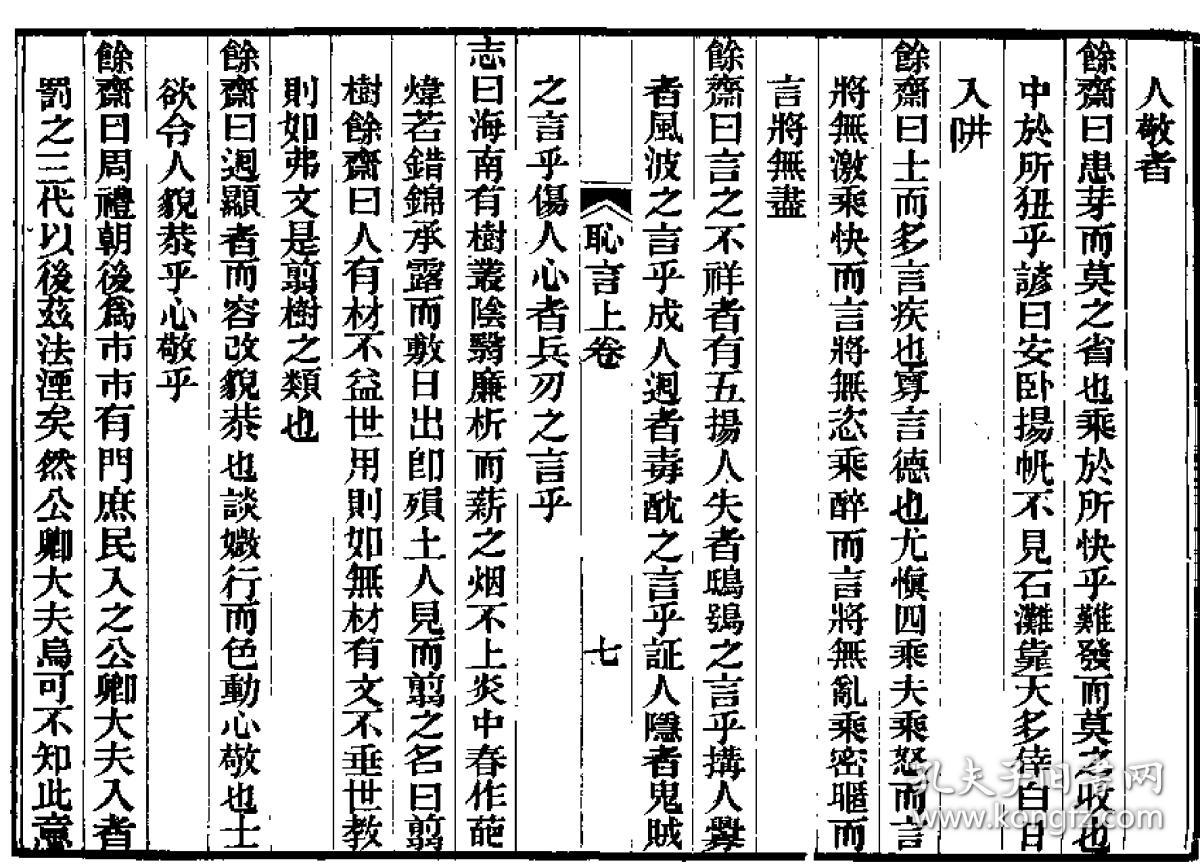 人敬者
餘齋曰患芽而莫之省也乘於所快乎難發而莫之收也
中於所狃乎諺曰安卧揚帆不見石灘靠天多倖白日
入阱
餘齋曰士而多言疾也尊言德也尤愼四乘夫乘怒而言
將無激乘快而言將無恣乘醉而言將無亂乘密暱而
言將無盡
餘齋曰言之不祥者有五揚人失者鴟鴞之言乎搆人釁
者風波之言乎成人過者毒酖之言乎証人隱者鬼賊
恥言上卷
七
之言乎傷人心者兵刃之言乎
志曰海南有樹叢陰翳廉析而薪之烟不上炎中春作葩
煒若錯錦承露而敷日出卽殞土人見而翦之名曰翦
樹餘齋曰人有材不益世用則如無材有文不垂世教
則如弗文是翦樹之類也
餘齋曰過顯者而容改貌恭也談媺行而色動心敬也士
欲令人貌恭乎心敬乎
餘齋曰周禮朝後爲市市有門庶民入之公卿大夫入者
罰之三代以後茲法湮矣然公卿大夫烏可不知此意
孔夫子旧书网
www.kongfz.com